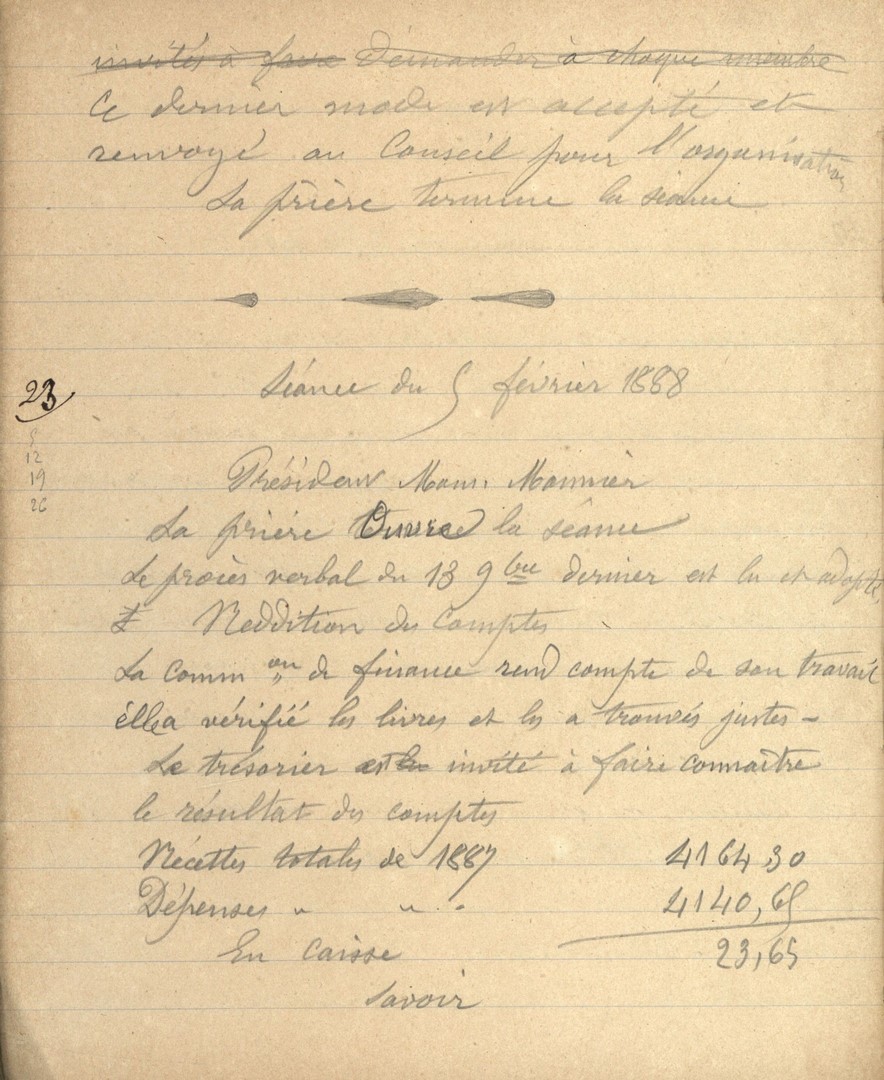 invités à faire demander à chaque membre
Ce dernier mode est accepté et
renvoyé au Conseil pour l'organisation
La prière termine la séance
Séance du 5 février 1888
23
5
12
19
26
Président Mons. Monnier
La prière Ouvre la séance
Le procès verbal du 13 9bre dernier est lu et adopté,
Reddition des Comptes
La comm on de finance rend compte de son travail
élle a vérifié les livres et les a trouvés justes -
Le trésorier est invité à faire connaître
le résultat des comptes
Récettes totales de 1887 4164,30
Dépenses " " " 4140,65
En caisse 23,65
Savoir